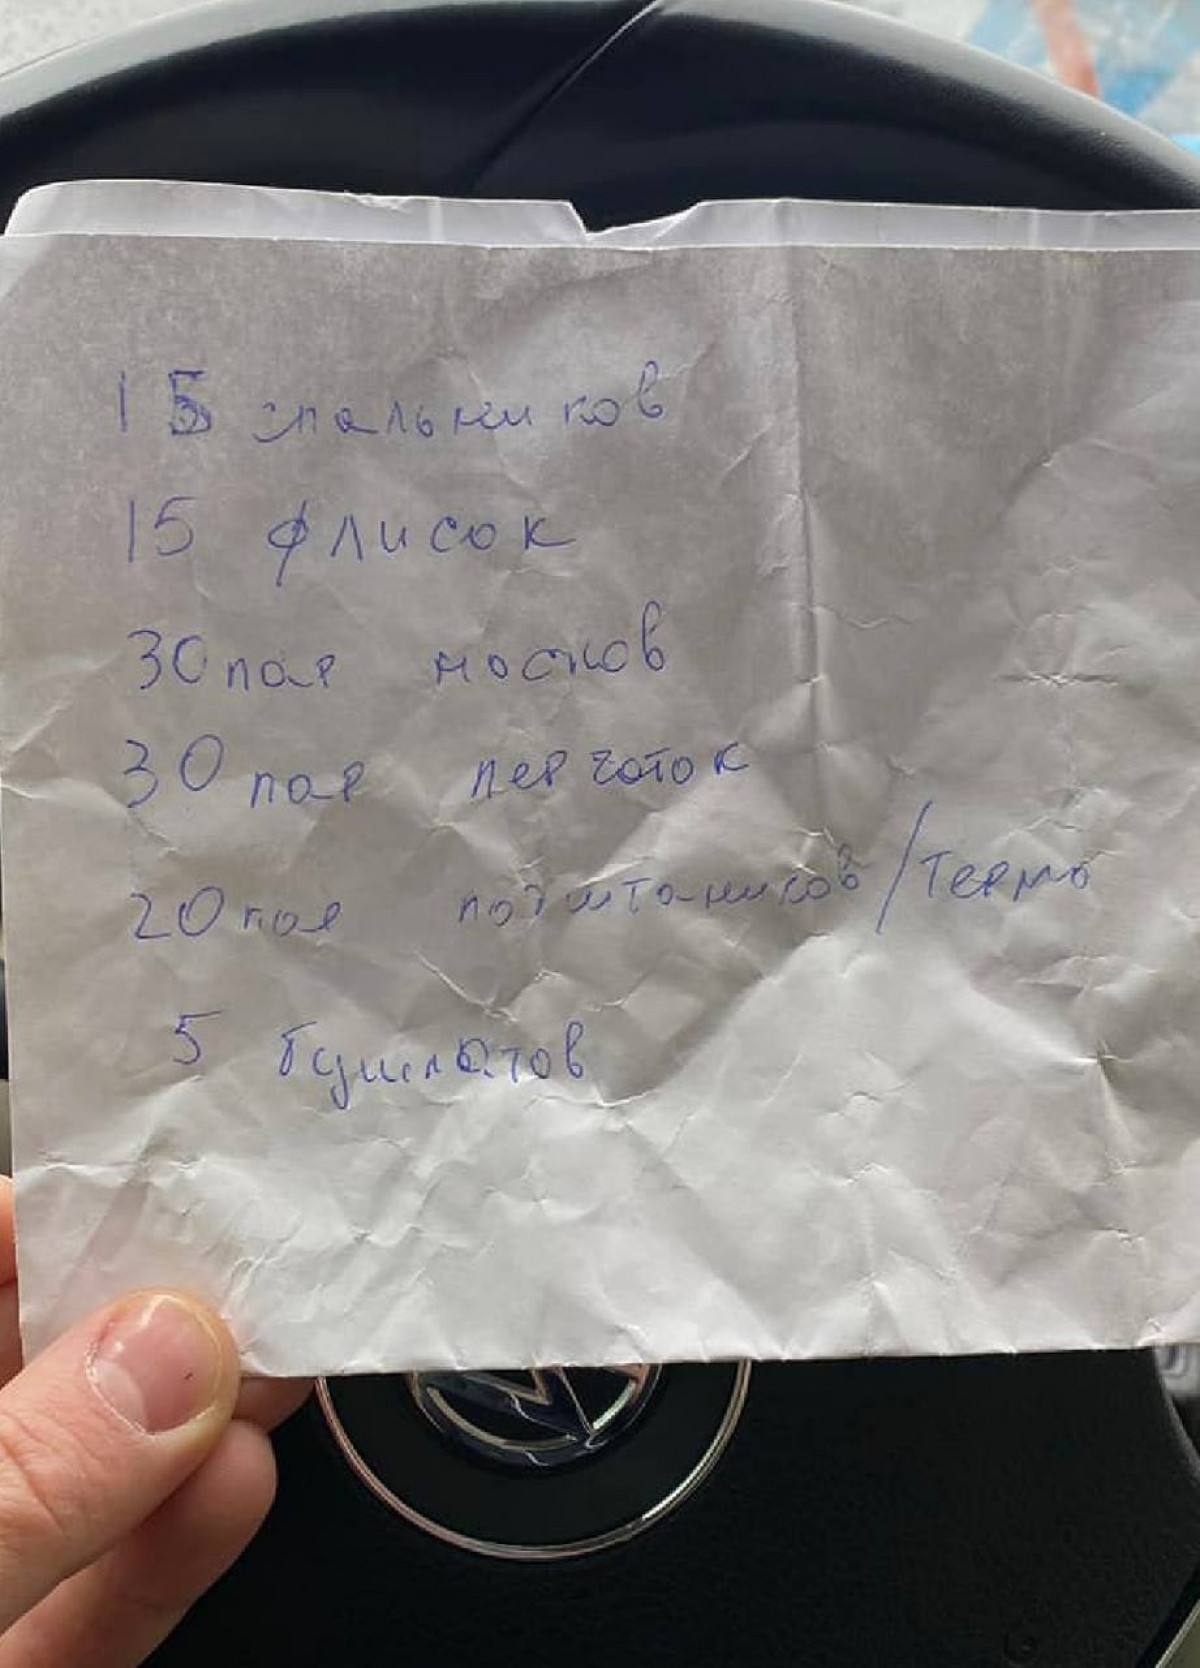 15 спальников
15 флисок
30 пар носков
30 пар перчаток
20 пар подштаников/термо
5 бушлатов